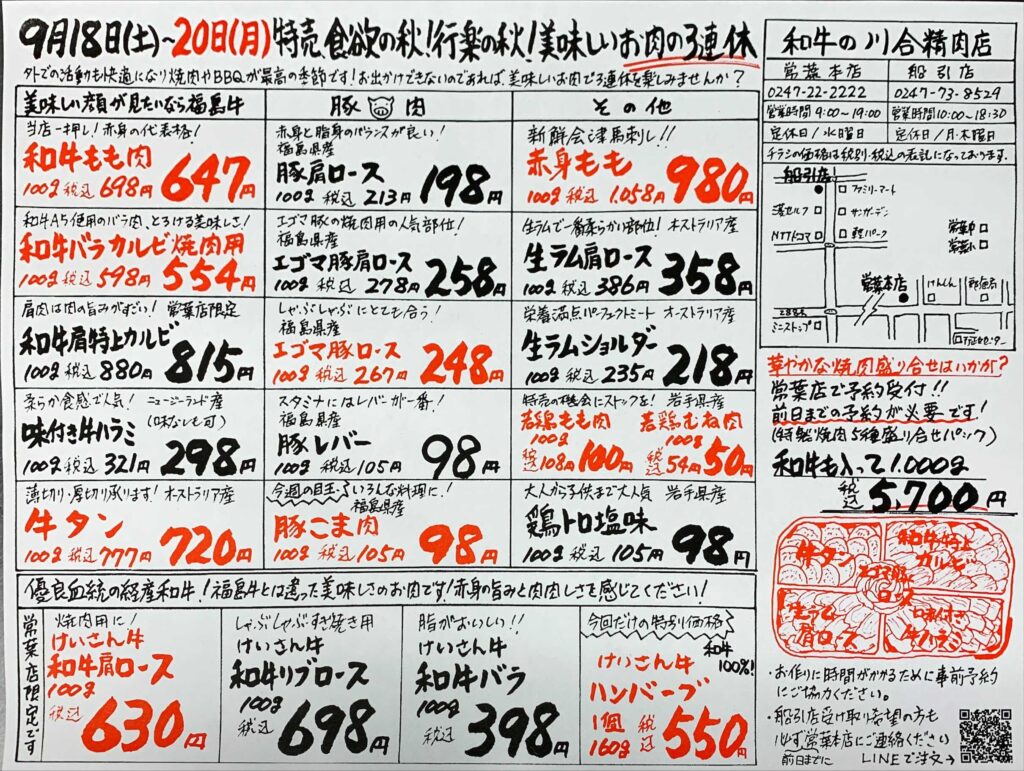 9月18日(土)~20日(月)特売 食欲の秋!行楽の秋!美味しいお肉の3連休
外での活動も快適になり焼肉やBBQが最高の季節です!お出かけできないのであれば、美味しいお肉で3連休を楽しみませんか?
美味しい顔が見たいなら福島牛
当店一押し!赤身の代表格!
和牛もも肉
100g 税込 698円 647円
和牛A5使用のバラ肉、とろける美味しさ!
和牛バラカルビ焼肉用
100g 税込 598円 554円
肩肉は肉の旨みがすごい! 常葉店限定
和牛肩特上カルビ
100g 税込 880円 815円
柔らか食感で人気! ニュージーランド産
味付き牛ハラミ (味なしも可)
100g 税込 321円 298円
薄切り・厚切り承ります! オーストラリア産
牛タン
100g 税込 777円 720円
豚肉
赤身と脂身のバランスが良い!
福島県産
豚肩ロース
100g 税込 213円 198円
エゴマ豚の焼肉用の人気部位!
福島県産
エゴマ豚肩ロース
100g 税込 278円 258円
しゃぶしゃぶにとても合う!
福島県産
エゴマ豚ロース
100g 税込 267円 248円
スタミナにはレバーが一番!
福島県産
豚レバー
100g 税込 105円 98円
今週の目玉 いろんな料理に!
福島県産
豚こま肉
100g 税込 105円 98円
その他
新鮮会津馬刺し!!
赤身もも
100g 税込 1.058円 980円
生ラムで一番柔らか部位! オーストラリア産
生ラム肩ロース
100g 税込 386円 358円
栄養満点パーフェクトミート オーストラリア産
生ラムショルダー
100g 税込 235円 218円
特売の機会にストックを! 岩手県産
若鶏もも肉 若鶏むね肉
100g 100g
税込 108円 100円 税込 54円 50円
大人から子供まで大人気 岩手県産
鶏トロ塩味
100g 税込 105円 98円
優良血統の経産和牛!福島牛とは違った美味しさのお肉です!赤身の旨みと肉肉しさを感じてください!
常葉店限定です
焼肉用に!
けいさん牛
和牛肩ロース
100g
税込 630円
しゃぶしゃぶすき焼き用
けいさん牛
和牛リブロース
100g
税込 698円
脂がおいしい!!
けいさん牛
和牛バラ
100g
税込 398円
今回だけの特別価格
和牛100%!
けいさん牛
ハンバーグ
1個 160g
税込 550円
和牛の川合精肉店
常葉本店 船引店
0247-22-2222 0247-73-8529
営業時間 9:00~19:00 営業時間 10:00~18:30
定休日/水曜日 定休日/月・木曜日
チラシの価格は税別・税込の表記になっております。
船引店
ファミリーマート
サンガーデン
NTTドコモ
軽パーク
常葉中
常葉小
常葉本店
けんしん
郵便局
288号
ミニストップ
華やかな焼肉盛り合せはいかが?
常葉店で予約受付!!
前日までの予約が必要です!
(特製焼肉5種盛り合せパック)
和牛も入って1.000g
税込 5,700円
牛タン
和牛特上カルビ
エゴマ豚ロース
生ラム肩ロース
味付き牛ハラミ
・お作りに時間がかかるために事前予約
にご協力ください。
・船引店受け取り希望の方も
必ず常葉本店にご連絡ください
前日までに LINEで注文→